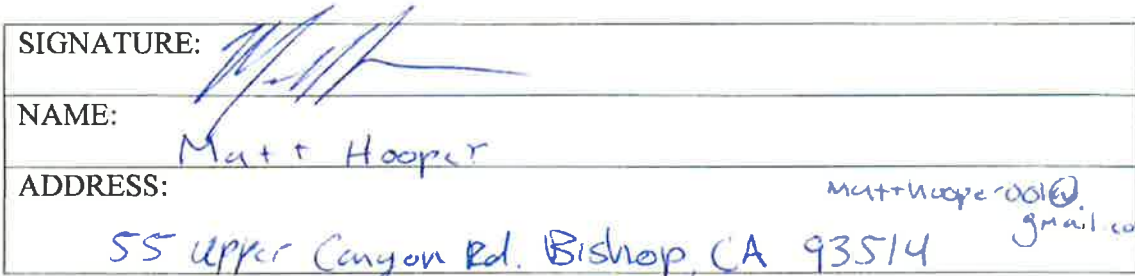 SIGNATURE:
NAME:
Matt Hooper
ADDRESS:
matthooper001@
gmail.co
55 Upper Canyon Rd. Bishop, CA 93514